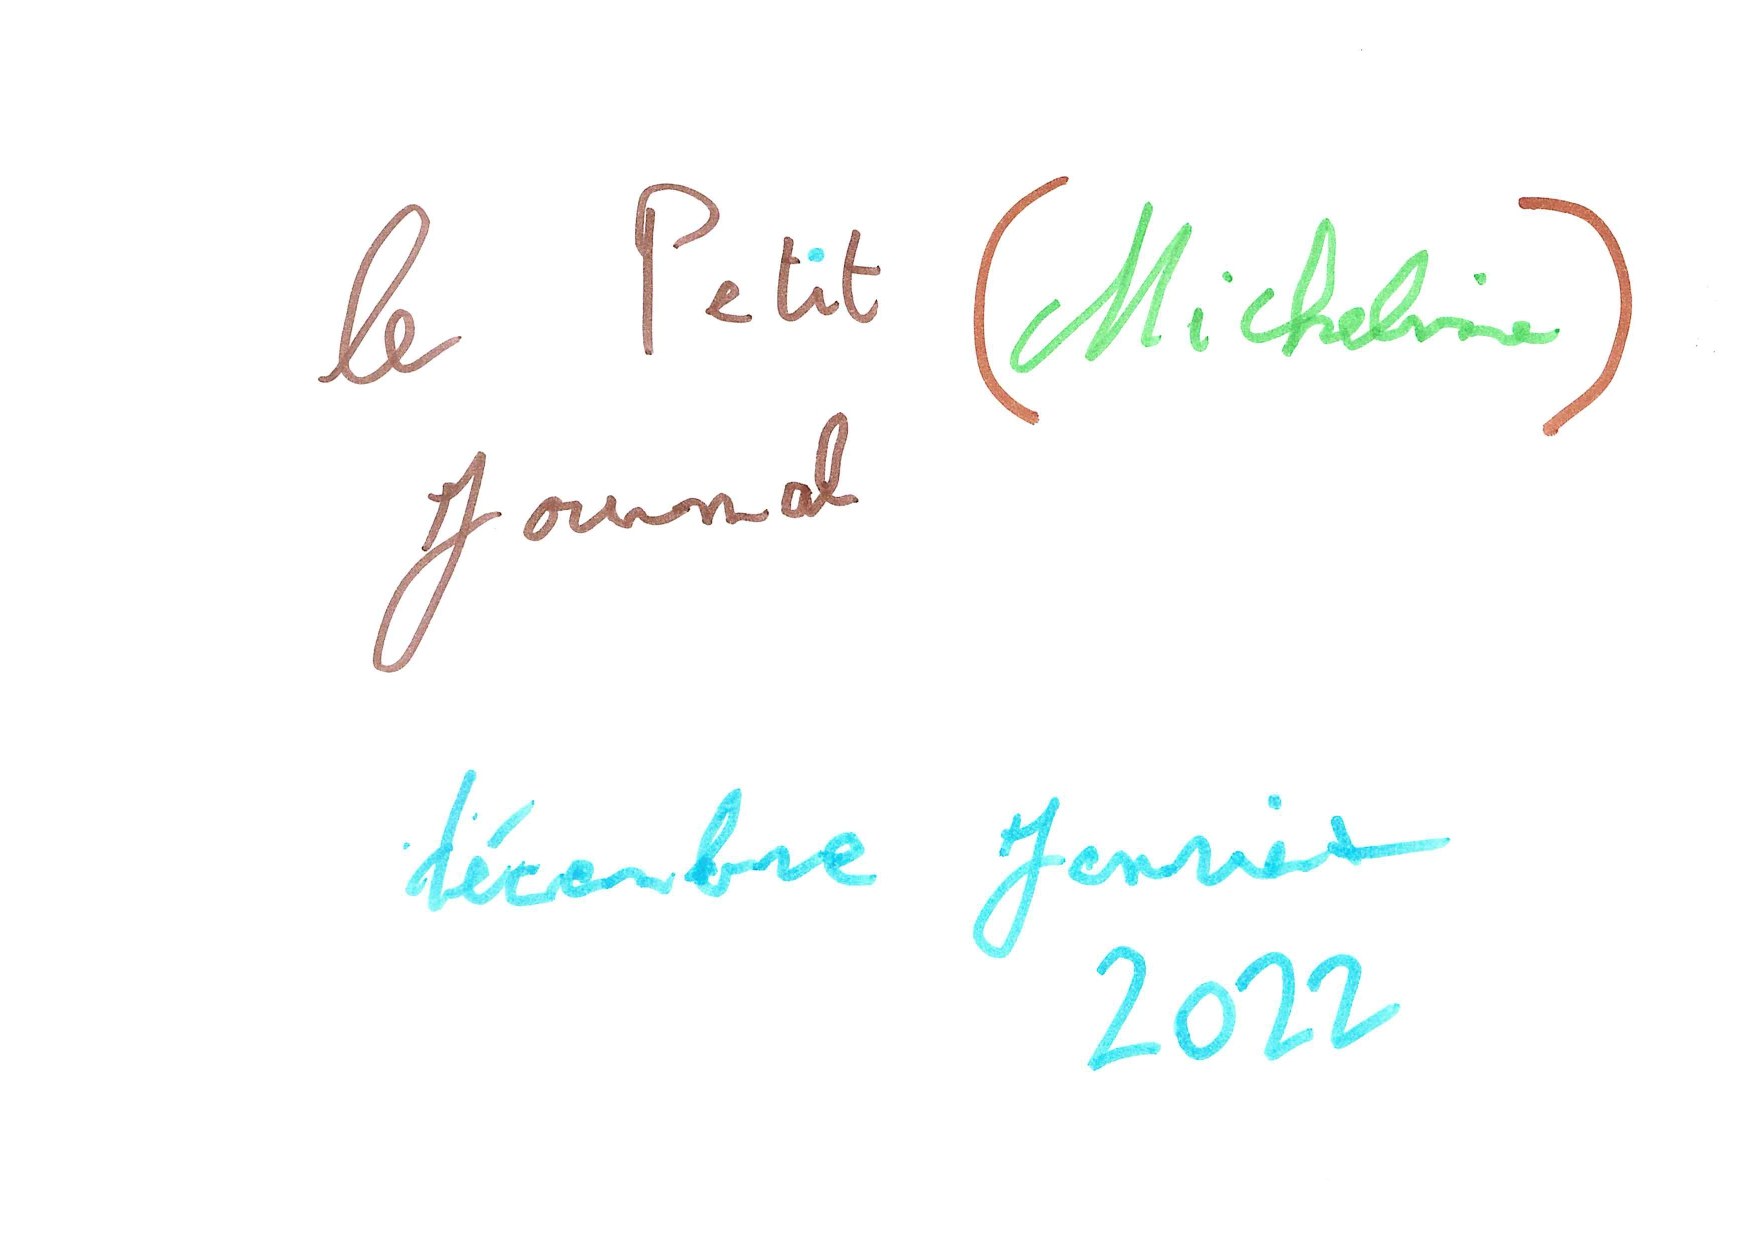 le Petit (Micheline)
Journal
décembre Janvier
2022